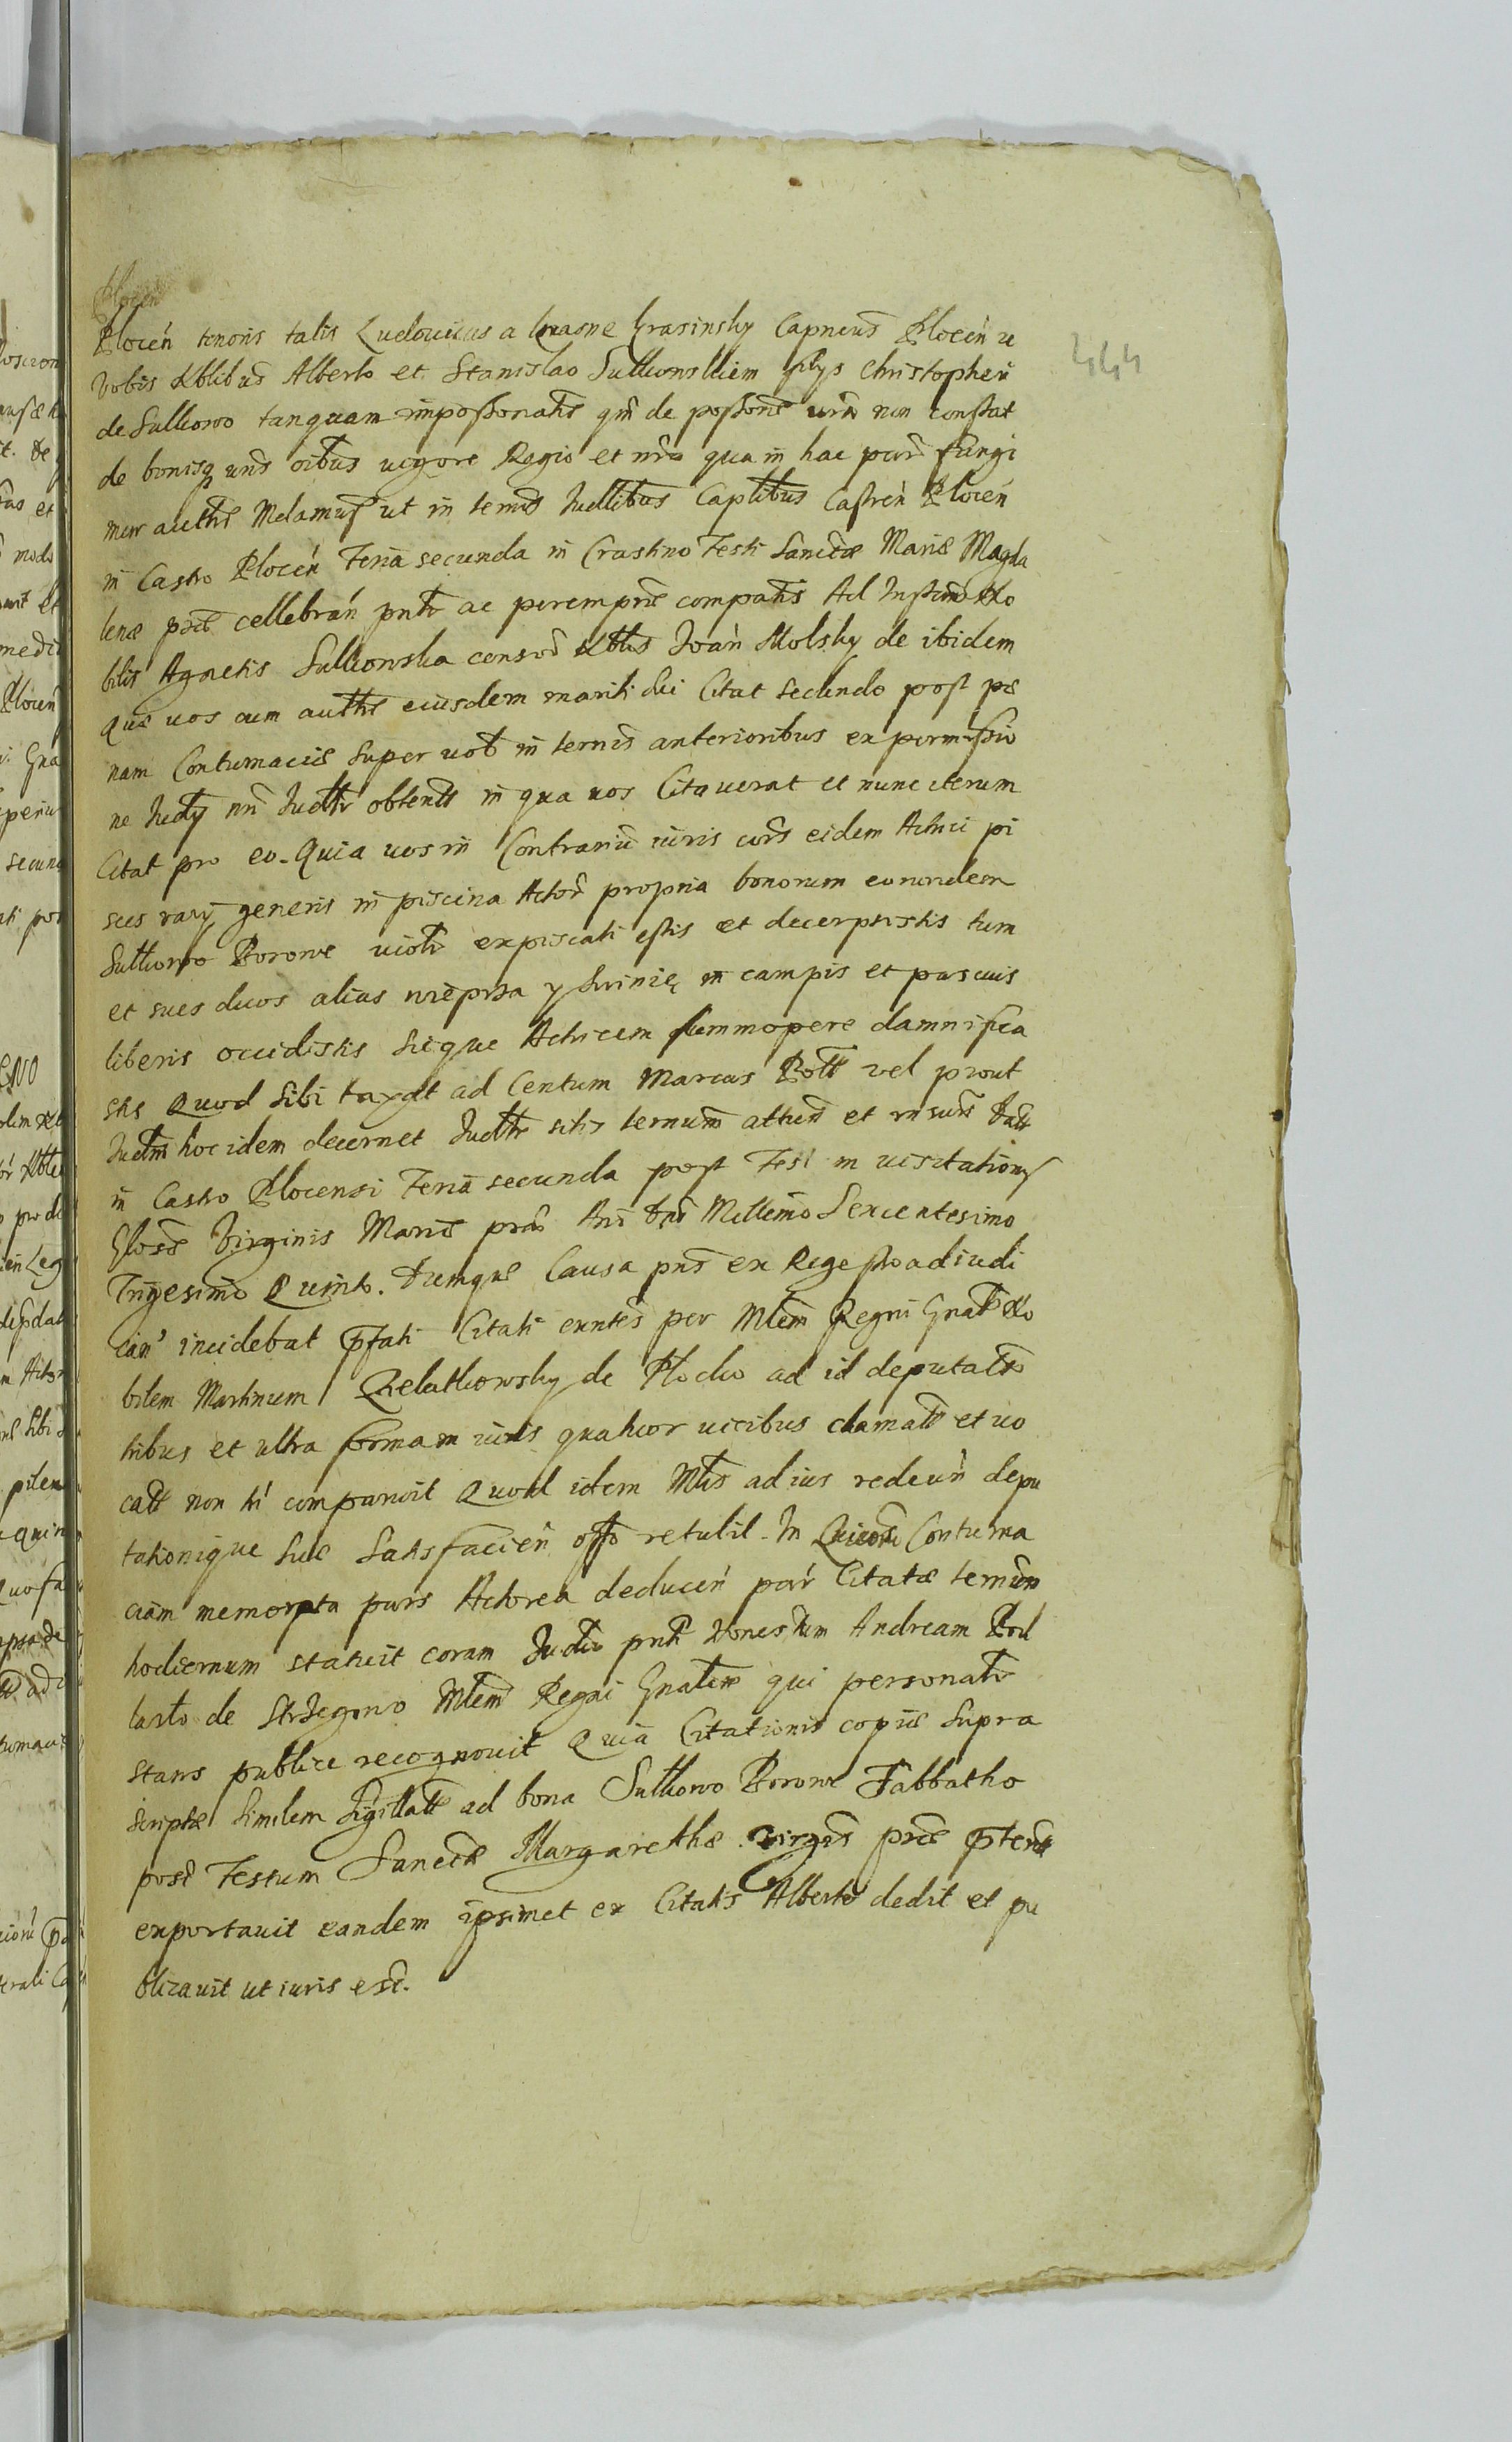 Plocen
Plocen tenoris talis Ludouicus a Krasne Krasinsky Capneus Plocen
Vobis Nblibus Alberto et Stanislao Sulkowskiem filys Christopheri
de Sulkowo tanquam impossionatis qm de possione vra non constat
de bonisq vris oibus uigore Regio et nra qua in hac parte fungi
mur autte Mdamus ut in termis Iudlibus Caplibus Castren Plocen
in Castro Plocen Feria secunda in Crastino Festi Sanctae Mariae Magda
lenae pxe cellebran pntr ac peremprie compatis Ad Instan No
bilis Agnetis Sulkowska consor Nblis Ioan Molsky de ibidem
Quae uos cum autte eiusdem mariti sui Citat secundo post pae
nam Contumaciae super uob in termis anterioribus ex permissio
ne Iudy nri Iudlr obtent in qua uos Citauerat et nunc iterum
Citat pro eo. Quia uos in Contrariu iuris cois eidem Actrici pi
sces vary generis in piscina Actor propria bonorum eorundem
Sulkowo Borowe violr expiscati estis et decerpsistis tum
et sues duos alias wieprza y swinię in campis et pascuis
liberis occidistis sicque Actricem summopere damnifica
stis Quod sibi taxat ad Centum Marcas Poll vel prout
Iudm hoc idem decernet Iudlr sitis termum atten et rnsuri Dat
in Castro Plocensi Feria secunda post Fest m uisitationis
Glosae Virginis Mariae prae Ani Dni Millemo Sexcentesimo
Trigesimo Quinto. Dumque Causa pns ex Regestro adiudi
can incidebat pfati Citati exntes per Mlem Regni Gnalē No
bilem Martinum Relatkowsky de Plocko ad id deputato
tribus et ultra formam iuris quatuor uicibus clamati et uo
cati non ti comparuit Quod idem Mtis ad ius redeun depu
tationique suae Satisfacien offo retulit. In Quicon Contuma
ciam memorata pars Actorea deducen par Citatae termum
hodiernum statuit coram Iudio pnti Honestum Andream Pod
lasto de Strzegowo Mlem Regni Gnalem qui personalr
stans publice recognouit Quia Citationis copiae supra
scriptae similem sigillatae ad bona Sulkowo Borowe Sabbatho
post Festum Sanctae Margarethae virgis prae pterite
exportauit eandem ipsimet ex Citatis Alberto dedit et pu
blicauit ut iuris est.